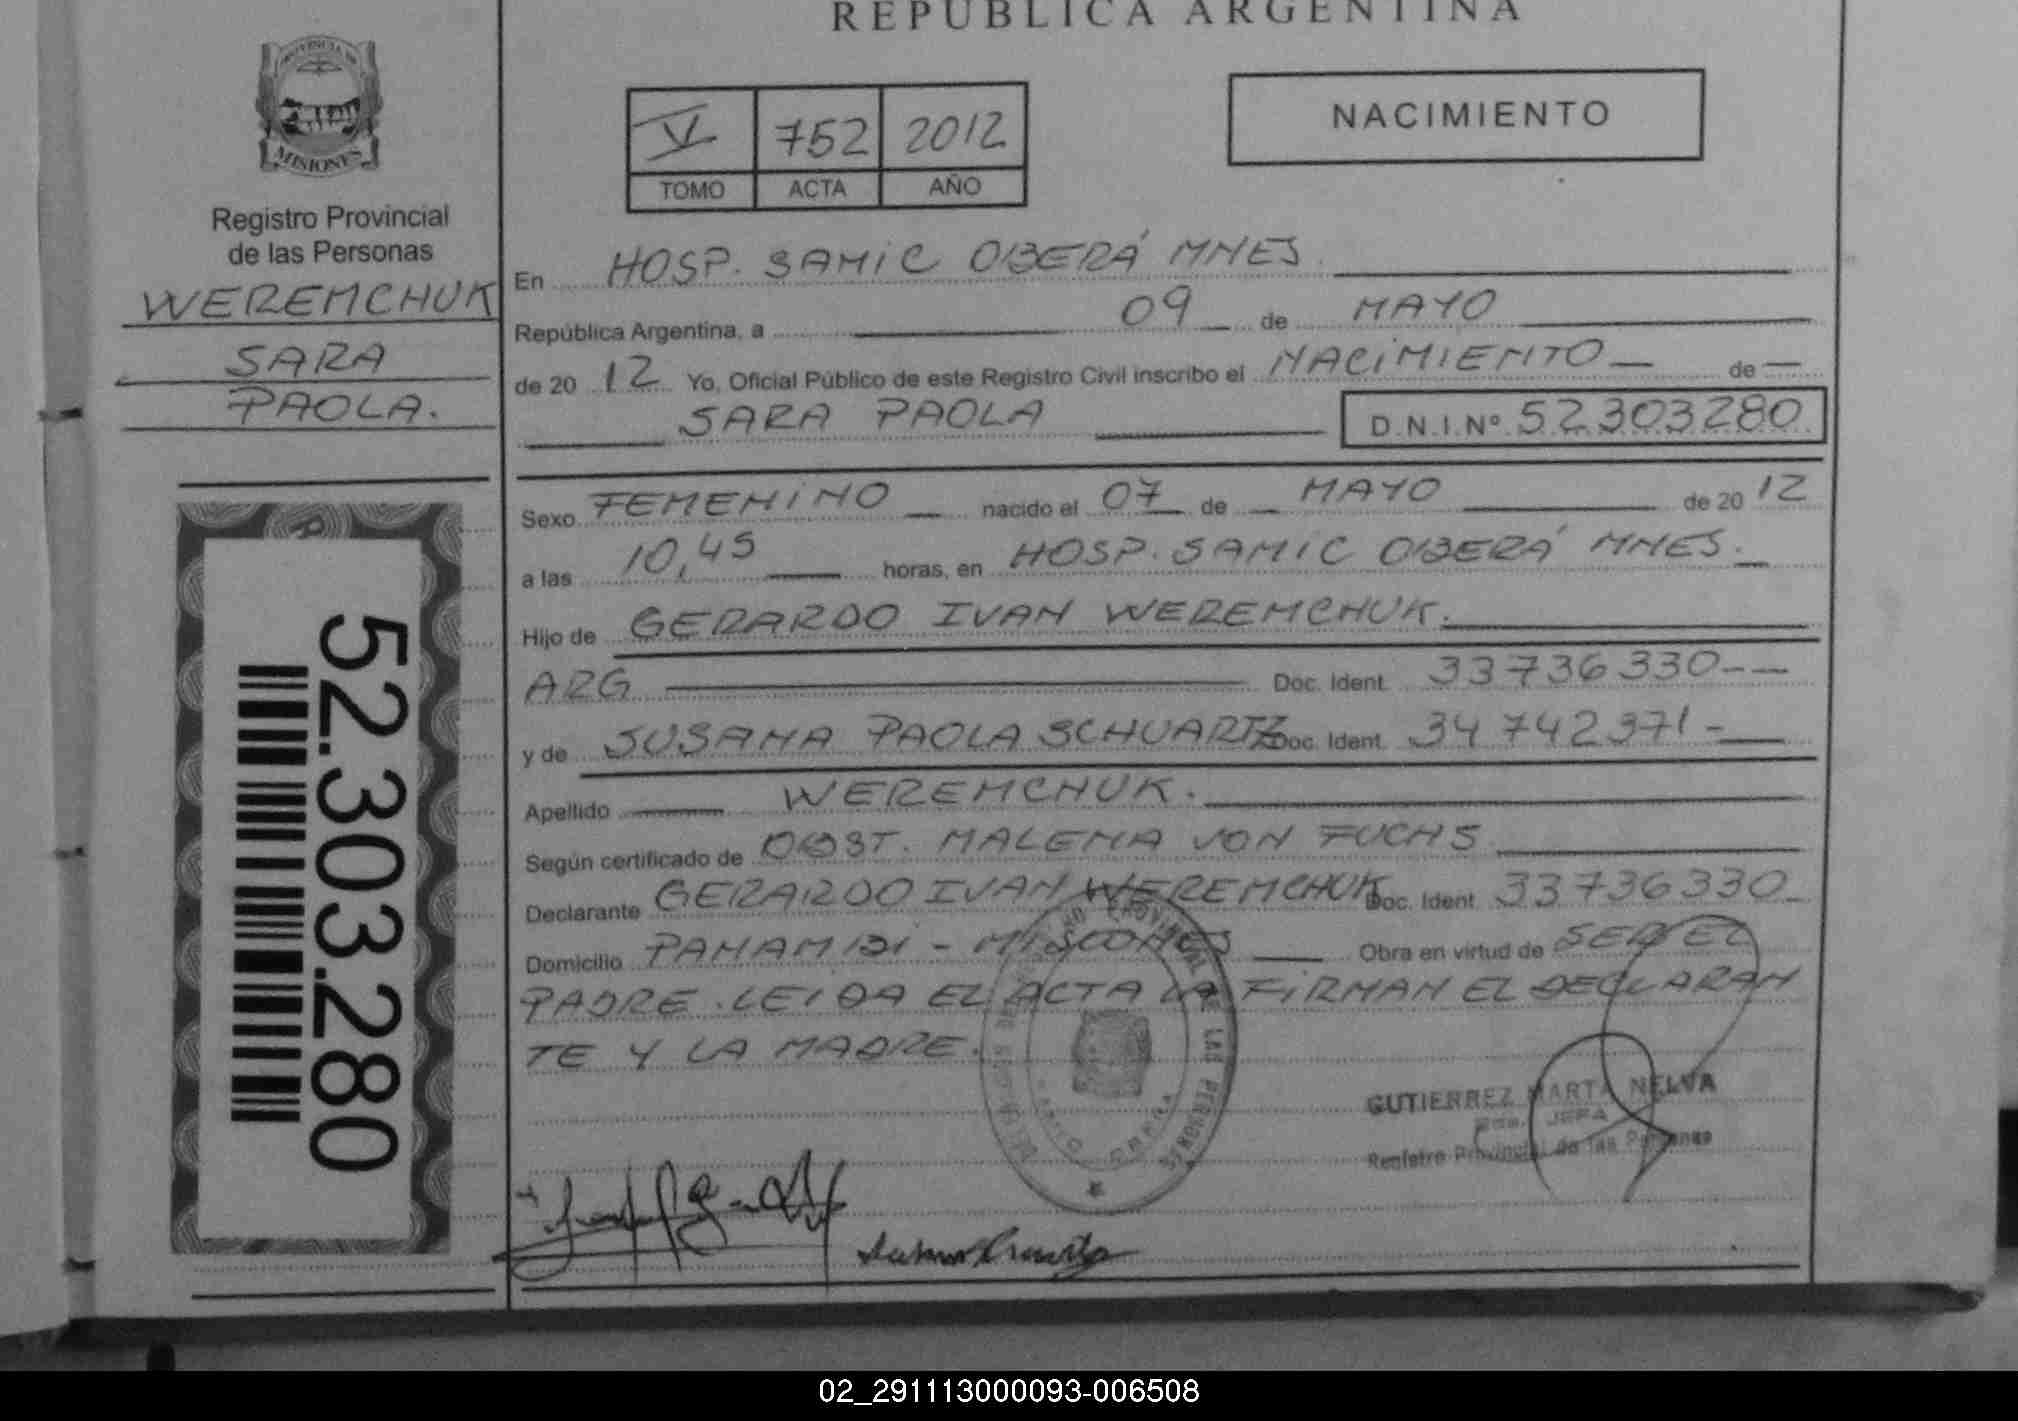 REPÚBLICA ARGENTINA
PROVINCIA DE
MISIONES
Registro Provincial
de las Personas
WEREMCHUK
SARA
PAOLA.
52.303.280
V 752 2012
TOMO ACTA AÑO
NACIMIENTO
En HOSP. SAMIC OBERÁ MNES.
República Argentina, a 09 de MAYO
de 20 12 Yo, Oficial Público de este Registro Civil inscribo el NACIMIENTO de
SARA PAOLA D.N.I.Nº 52303280
Sexo FEMENINO nacido el 07 de MAYO de 20 12
a las 10,45 horas, en HOSP. SAMIC OBERÁ MNES.
Hijo de GERARDO IVAN WEREMCHUK.
ARG Doc. Ident. 33736330--
y de SUSANA PAOLA SCHUARTZ Doc. Ident. 34742371-
Apellido WEREMCHUK.
Según certificado de OBST. MALENA VON FUCHS
Declarante GERARDO IVAN WEREMCHUK Doc. Ident. 33736330
Domicilio PANAMBI - MISIONES Obra en virtud de SER EL
PADRE. LEIDA EL ACTA LA FIRMAN EL DECLARAN
TE Y LA MADRE.
PROVINCIAL DE LAS PERSONAS
GUTIERREZ MARTA NELVA
JEFA
Registro Provincial de las Personas
02_291113000093-006508